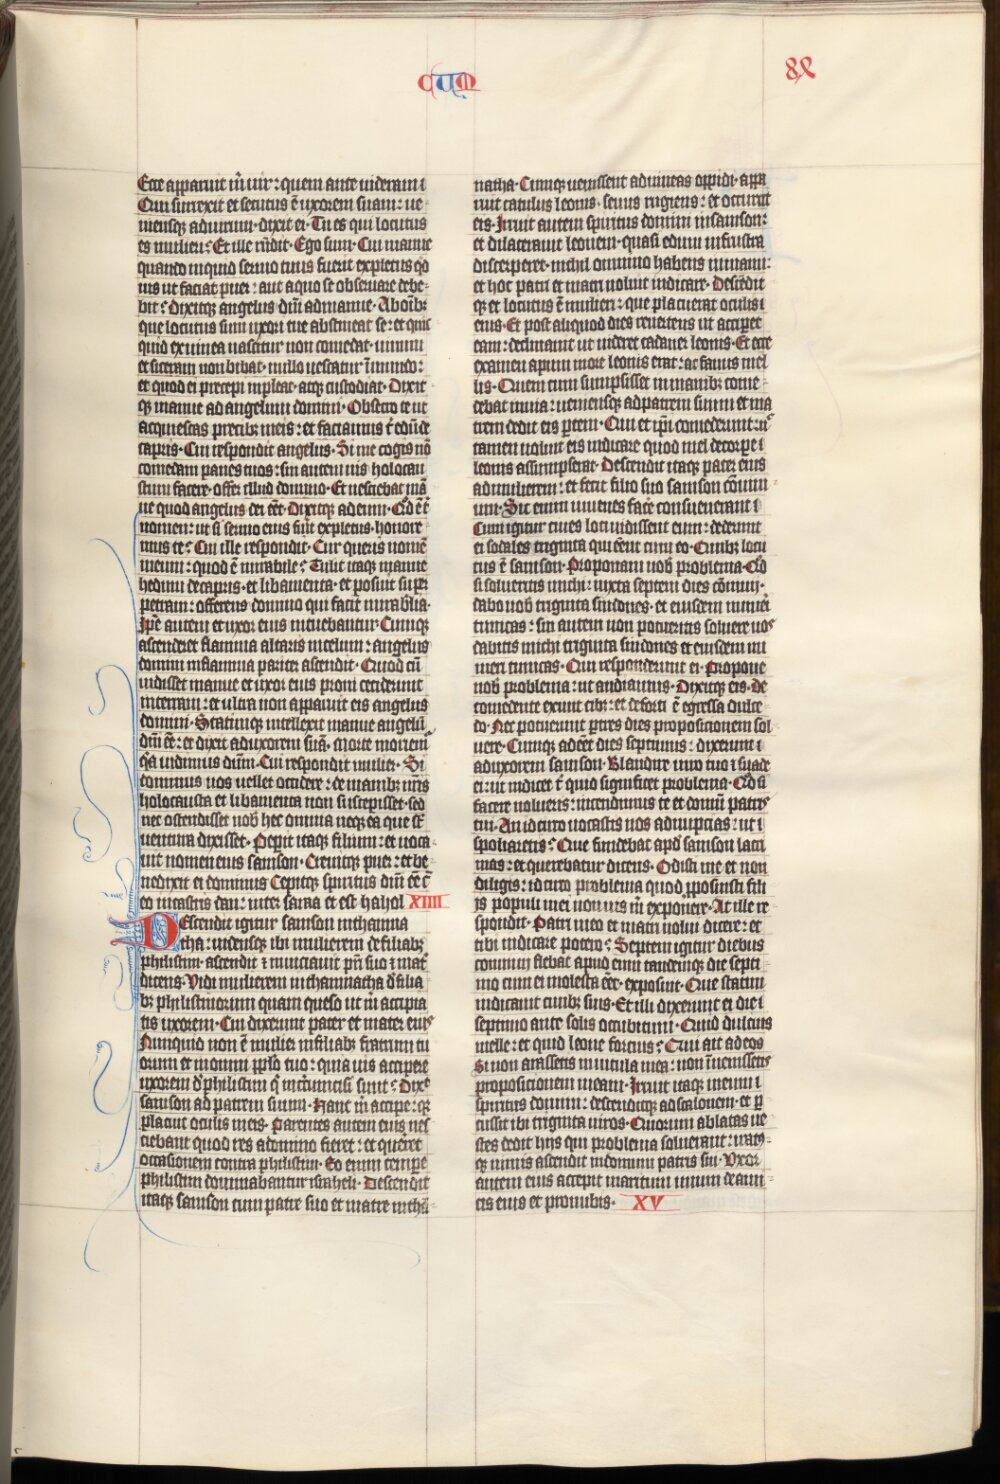 CUM
88
Ecce apparuit m̄ uir: quem ante uideram i
Qui surrexit et secutus ē uxorem suam: ue
niensq; ad uirum· dixit ei· Tu es qui locutus
es mulieri? Et ille rn̄dit· Ego sum· Cui manue
quando inquid sermo tuus fuerit expletus qd
uis ut faciat puer: aut a quo se obseruare debe
bit? Dixitq; angelus dn̄i ad manue· Ab oīb;
que locutus sum uxori tue abstineat se: et quic
quid ex uinea nascitur non comedat· uinum
et siceram non bibat· nullo uescatur īmundo:
et quod ei precepi impleat· atq; custodiat· Dixit
q; manue ad angelum domini· Obsecro te ut
acquiescas precib; meis: et faciamus t̄ edū de
capris· Cui respondit angelus· Si me cogis nō
comedam panes tuos: sin autem uis holocau
stum facere· offer illud domino· Et nesciebat ma
nue quod angelus dei eēt· Dixitq; ad eum· Qd̄ ē t̄
nomen: ut si sermo tuus fuīt expletus· honore
mus te? Cui ille respondit· Cur queris nomē
meum: quod ē mirabile? Tulit itaq; manue
hedum de capris· et libamenta· et posuit super
petram: offerens domino qui facit mirabilia·
Ip̄e autem et uxor eius intuebantur· Cumq;
ascenderet flamma altaris in celum: angelus
domini in flamma pariter ascendit· Quod cū
uidisset manue et uxor eius proni ceciderunt
in terram: et ultra non apparuit eis angelus
domini· Statimq; intellexit manue angelū
dn̄i eē: et dixit ad uxorem suā· Morte moriem̄
q̄a uidimus dn̄m· Cui respondit mulier· Si
dominus nos uellet occidere: de manib; nr̄is
holocausta et libamenta non suscepisset· sed
nec ostendisset nob̄ hec omnia neq; ea que st̄
uentura dixisset· Peperit itaq; filium: et uoca
uit nomen eius samson· Creuitq; puer: et be
nedixit ei dominus Cepitq; spiritus dn̄i eē c̄
eo in castris dan: inter saraa et est hahol XIIII
Descendit igitur samson in thamna
tha: uidensq; ibi mulierem de filiab;
philistim· ascendit et nunciauit pr̄i suo et mat̄
dicens· Vidi mulierem in thamnatha de filia
b; philistinorum quam queso ut m̄ accipia
tis uxorem· Cui dixerunt pater et mater eius
Nunquid non ē mulier in filiab; fratrum tu
orum et in omni pp̄lo tuo: quia uis accipere
uxorem de philistim q̄ incircumcisi sunt? Dix̄
samson ad patrem suum· Hanc m̄ accipe: q̄
placuit oculis meis· Parentes autem eius nes
ciebant quod res a domino fieret: et quereret
occasionem contra philistim· Eo enim tempe
philistim dominabantur israheli· Descendit
itaq; samson cum patre suo et matre in tha
natha· Cumq; uenissent ad uineas oppidi· appa
ruit catulus leonis· seuus rugiens: et occurrit
eis· Irruit autem spiritus domini in samson:
et dilacerauit leonem· quasi edum in frustra
discerperet· nichil omnino habens in manu:
et hoc patri et matri noluit indicare· Descendit
q; et locutus ē mulieri: que placuerat oculis i
eius· Et post aliquod dies reuertens ut acciperet
eam: declinauit ut uideret cadauer leonis· Et ecce
examen apum in ore leonis erat: ac fauus mel
lis· Quem cum sumpsisset in manib; come
debat in uia: ueniensq; ad patrem suum et ma
trem dedit eis ptem· Qui et ip̄i comederunt: n̄
tamen uoluit eis indicare quod mel de corpe i
leonis assumpserat· Descendit itaq; pater eius
ad mulierem: et fecit filio suo samson cōuiui
um· Sic enim iuuenes facē consueuerant i
Cum igitur ciues loci uidissent eum: dederunt
ei sodales triginta qui eēnt cum eo· Quib; locu
tus ē samson· Proponam uob̄ problema· Qd̄
si solueritis michi: iuxta septem dies cōuiuii·
dabo uob̄ triginta sindones· et eiusdem numeī
tunicas: sin autem non potueritis soluere uos
dabitis michi triginta sindones et eiusdem nu
meri tunicas· Qui responderunt ei· Propone
nob̄ problema: ut audiamus· Dixitq; eis· De
comedente exiuit cib;: et de forti ē egressa dulce
do· Nec potuerunt p̄ tres dies propositionem sol
uere· Cumq; adeēt dies septimus: dixerunt i
ad uxorem samson· Blandire uiro tuo i suade
ei: ut indicet t̄ quid significet problema· Qd̄ si
facere nolueris: incendimus te et domū patris
tui· An idcirco uocastis nos ad nuptias: ut i
spoliaretis? Que fundebat apd̄ samson lacri
mas: et querebatur dicens· Odisti me et non
diligis: idcirco problema quod pposuisti fili
js populi mei non uis m̄ exponere· At ille re
spondit· Patri meo et matri nolui dicere: et
tibi indicare potero? Septem igitur diebus
conuiuii flebat apud eum tandemq; die septi
mo cum ei molesta eēt· exposuit· Que statim
indicauit ciuib; suis· Et illi dixerunt ei die i
septimo ante solis occubitum· Quid dulcius
melle: et quid leone forcius? Qui ait ad eos
Si non arassetis in uitula mea: non īuenissetis
proposicionem meam· Irruit itaq; in eum i
spiritus domini: descenditq; ascalonem· et p̄
cussit ibi triginta uiros· Quorum ablatas ue
stes dedit hijs qui problema soluerant: iratus
q; nimis ascendit in domum patris sui· Vxor
autem eius accepit maritum unum de ami
cis eius et pronubis· XV